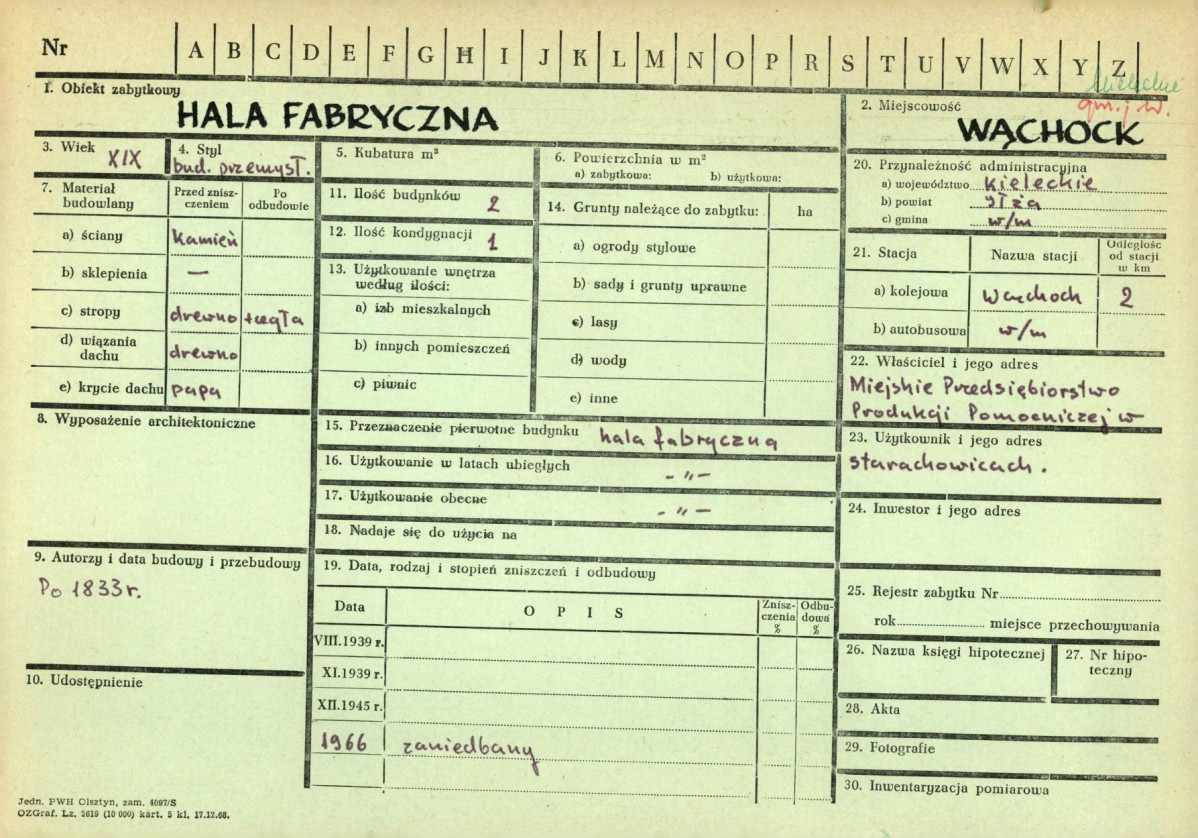 Nr A B C D E F G H I J K L M N O P R S T U V W X Y Z
gm. j. W.
1. Obiekt zabytkowy
HALA FABRYCZNA
2. Miejscowość
WĄCHOCK
3. Wiek XIX
4. Styl
bud. przemysł.
5. Kubatura m³
6. Powierzchnia w m²
a) zabytkowa: b) użytkowa:
7. Materiał budowlany
Przed zniszczeniem
Po odbudowie
a) ściany kamień
b) sklepienia —
c) stropy drewno + cegła
d) wiązania dachu drewno
e) krycie dachu papa
8. Wyposażenie architektoniczne
9. Autorzy i data budowy i przebudowy
Po 1833 r.
10. Udostępnienie
11. Ilość budynków 2
12. Ilość kondygnacji 1
13. Użytkowanie wnętrza
według ilości:
a) izb mieszkalnych
b) innych pomieszczeń
c) piwnic
14. Grunty należące do zabytku: ha
a) ogrody stylowe
b) sady i grunty uprawne
c) lasy
d) wody
e) inne
15. Przeznaczenie pierwotne budynku hala fabryczna
16. Użytkowanie w latach ubiegłych - " -
17. Użytkowanie obecne - " -
18. Nadaje się do użycia na
19. Data, rodzaj i stopień zniszczeń i odbudowy
Data OPIS Zniszczenia % Odbudowa %
VIII.1939 r.
XI.1939 r.
XII.1945 r.
1966 zaniedbany
20. Przynależność administracyjna
a) województwo kieleckie
b) powiat Iłża
c) gmina w/m
21. Stacja Nazwa stacji Odległość od stacji w km
a) kolejowa Wąchock 2
b) autobusowa w/m
22. Właściciel i jego adres
Miejskie Przedsiębiorstwo
Produkcji Pomocniczej w
23. Użytkownik i jego adres
Starachowicach.
24. Inwestor i jego adres
25. Rejestr zabytku Nr
rok miejsce przechowywania
26. Nazwa księgi hipotecznej
27. Nr hipoteczny
28. Akta
29. Fotografie
30. Inwentaryzacja pomiarowa
Jedn. PWH Olsztyn, zam. 4097/S
OZGraf. Lz. 2619 (10 000) kart. 5 kl. 17.12.68.